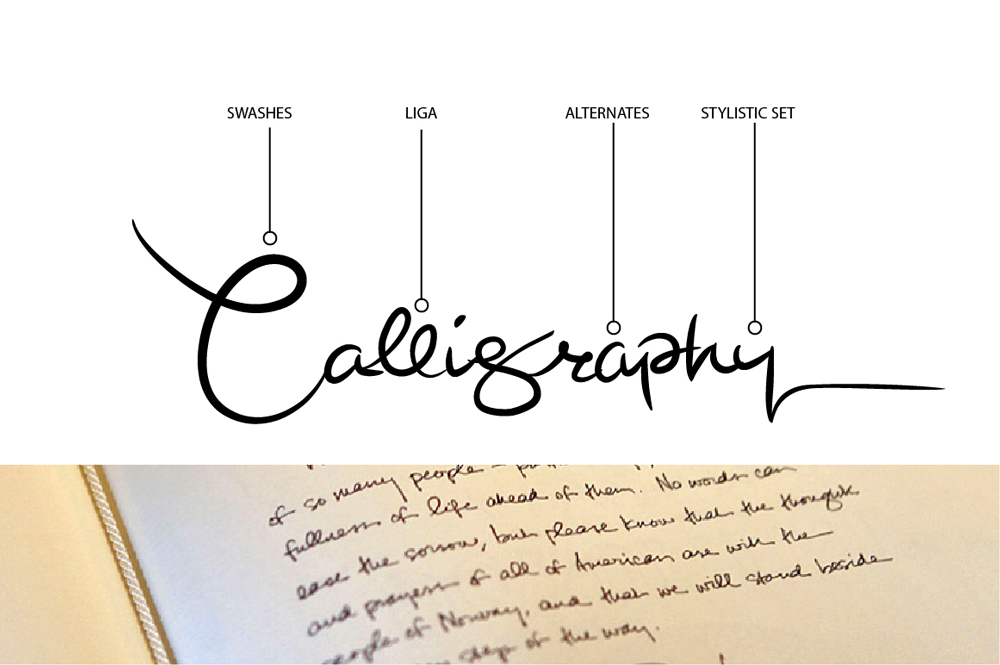 SWASHES LIGA ALTERNATES STYLISTIC SET
Calligraphy
of so many people
fullness of life ahead of them. No words can
ease the sorrow, but please know that the thoughts
and prayers of all of American are with the
people of Norway, and that we will stand beside
step of the way.